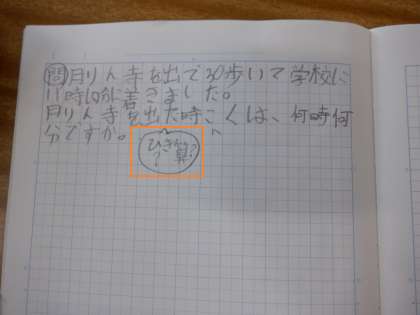 問 月りん寺を出て20歩いて学校に
11時10分に着きました。
月りん寺を出た時こくは、何時何
分ですか。
ひき算?
?